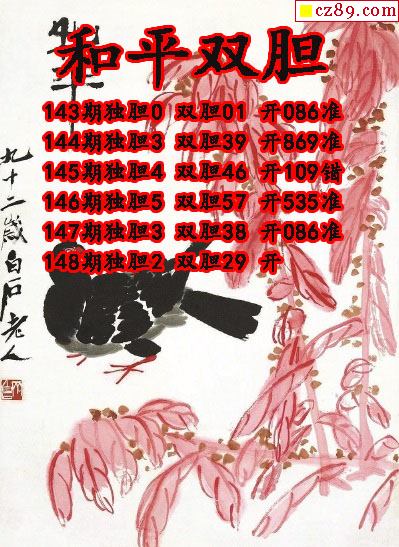 cz89.com
和平双胆
143期独胆0 双胆01 开086准
144期独胆3 双胆39 开869准
145期独胆4 双胆46 开109错
146期独胆5 双胆57 开535准
147期独胆3 双胆38 开086准
148期独胆2 双胆29 开
九十二岁白石老人